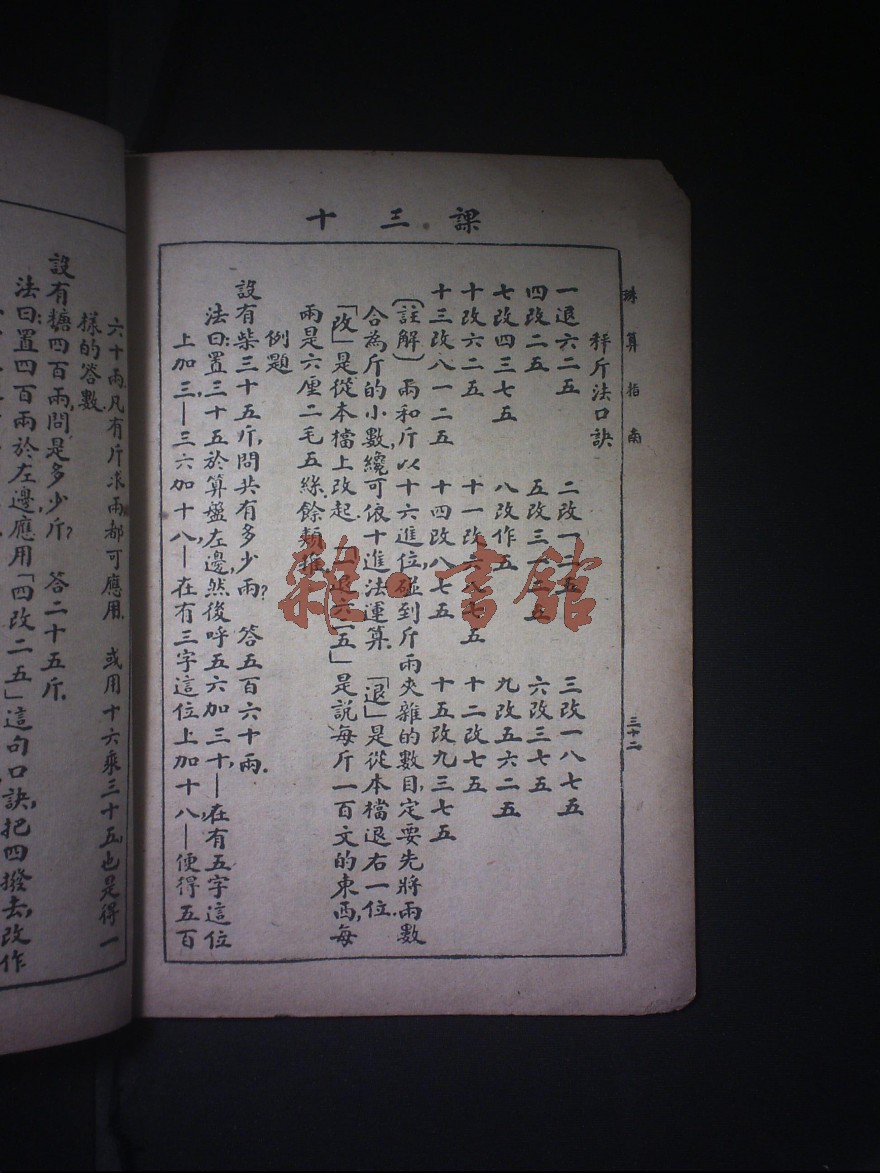 課三十
珠算指南
三十二
秤斤法口訣
一退六二五　二改一二五　三改一八七五
四改二五　五改三一二五　六改三七五
七改四三七五　八改作五　九改五六二五
十改六二五　十一改六八七五　十二改七五
十三改八一二五　十四改八七五　十五改九三七五
（註解）兩和斤以十六進位，碰到斤兩夾雜的數目，定要先將兩數
合為斤的小數，纔可依十進法運算．「退」是從本檔退右一位．
「改」是從本檔上改起．「一退六二五」是說每斤一百文的東西，每
兩是六厘二毛五絲，餘類推．
例題
設有柴三十五斤，問共有多少兩？　答五百六十兩．
法曰：置三十五於算盤左邊，然後呼五六加三十，—在有五字這位
上加三—三六加十八，—在有三字這位上加十八—便得五百
六十兩，凡有斤求兩都可應用．或用十六乘三十五，也是得一
樣的答數．
設有糖四百兩，問是多少斤？　答二十五斤．
法曰：置四百兩於左邊，應用「四改二五」這句口訣，把四撥去，改作
雜·書館